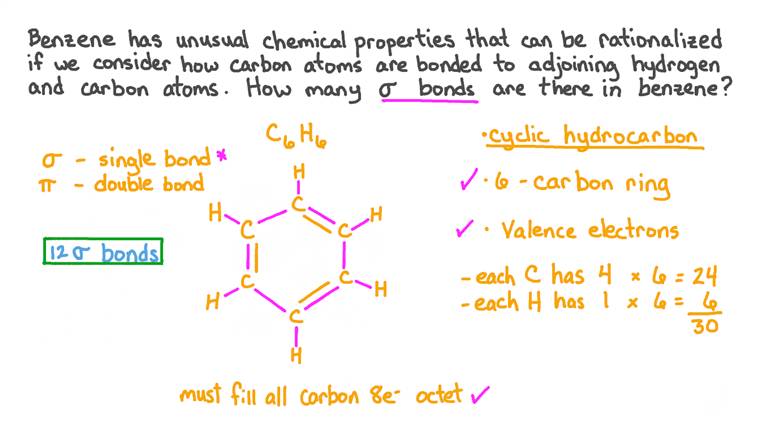 Benzene has unusual chemical properties that can be rationalized
if we consider how carbon atoms are bonded to adjoining hydrogen
and carbon atoms. How many σ bonds are there in benzene?
C₆H₆
σ - single bond*
π - double bond
12 σ bonds
H
H C H
C C
C C
H C H
H
• cyclic hydrocarbon
✓ • 6 - carbon ring
✓ • Valence electrons
- each C has 4 × 6 = 24
- each H has 1 × 6 = 6
30
must fill all carbon 8e⁻ octet ✓